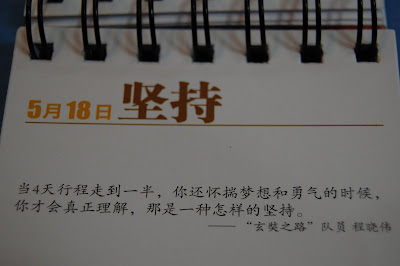 5月18日 坚持
当4天行程走到一半，你还怀揣梦想和勇气的时候，
你才会真正理解，那是一种怎样的坚持。
——“玄奘之路”队员 程晓伟